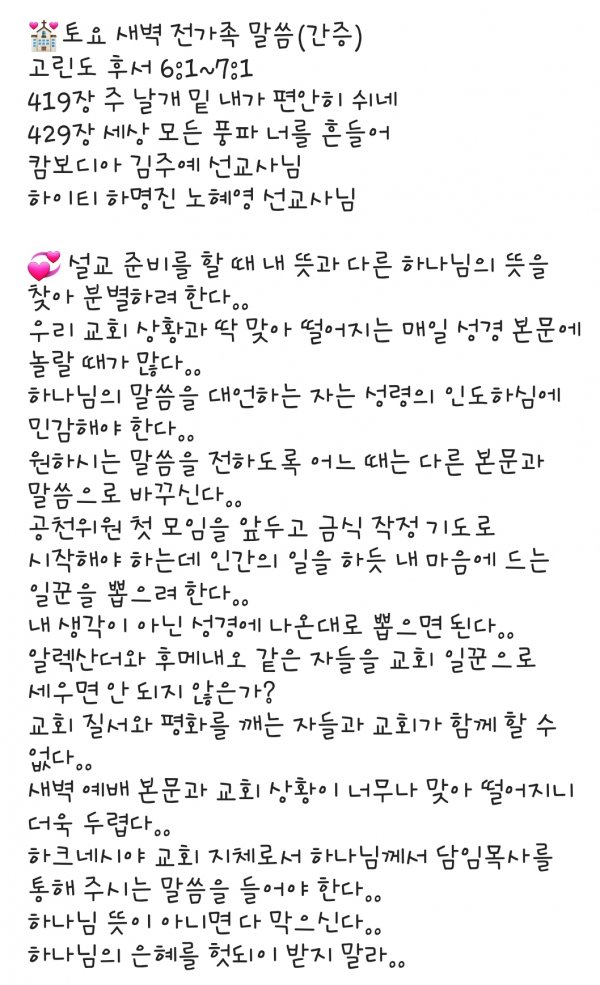 💒토요 새벽 전가족 말씀(간증)
고린도 후서 6:1~7:1
419장 주 날개 밑 내가 편안히 쉬네
429장 세상 모든 풍파 너를 흔들어
캄보디아 김주예 선교사님
하이티 하명진 노혜영 선교사님
💞 설교 준비를 할 때 내 뜻과 다른 하나님의 뜻을
찾아 분별하려 한다..
우리 교회 상황과 딱 맞아 떨어지는 매일 성경 본문에
놀랄 때가 많다..
하나님의 말씀을 대언하는 자는 성령의 인도하심에
민감해야 한다..
원하시는 말씀을 전하도록 어느 때는 다른 본문과
말씀으로 바꾸신다..
공천위원 첫 모임을 앞두고 금식 작정 기도로
시작해야 하는데 인간의 일을 하듯 내 마음에 드는
일꾼을 뽑으려 한다..
내 생각이 아닌 성경에 나온대로 뽑으면 된다..
알렉산더와 후메내오 같은 자들을 교회 일꾼으로
세우면 안 되지 않은가?
교회 질서와 평화를 깨는 자들과 교회가 함께 할 수
없다..
새벽 예배 본문과 교회 상황이 너무나 맞아 떨어지니
더욱 두렵다..
하크네시야 교회 지체로서 하나님께서 담임목사를
통해 주시는 말씀을 들어야 한다..
하나님 뜻이 아니면 다 막으신다..
하나님의 은혜를 헛되이 받지 말라..